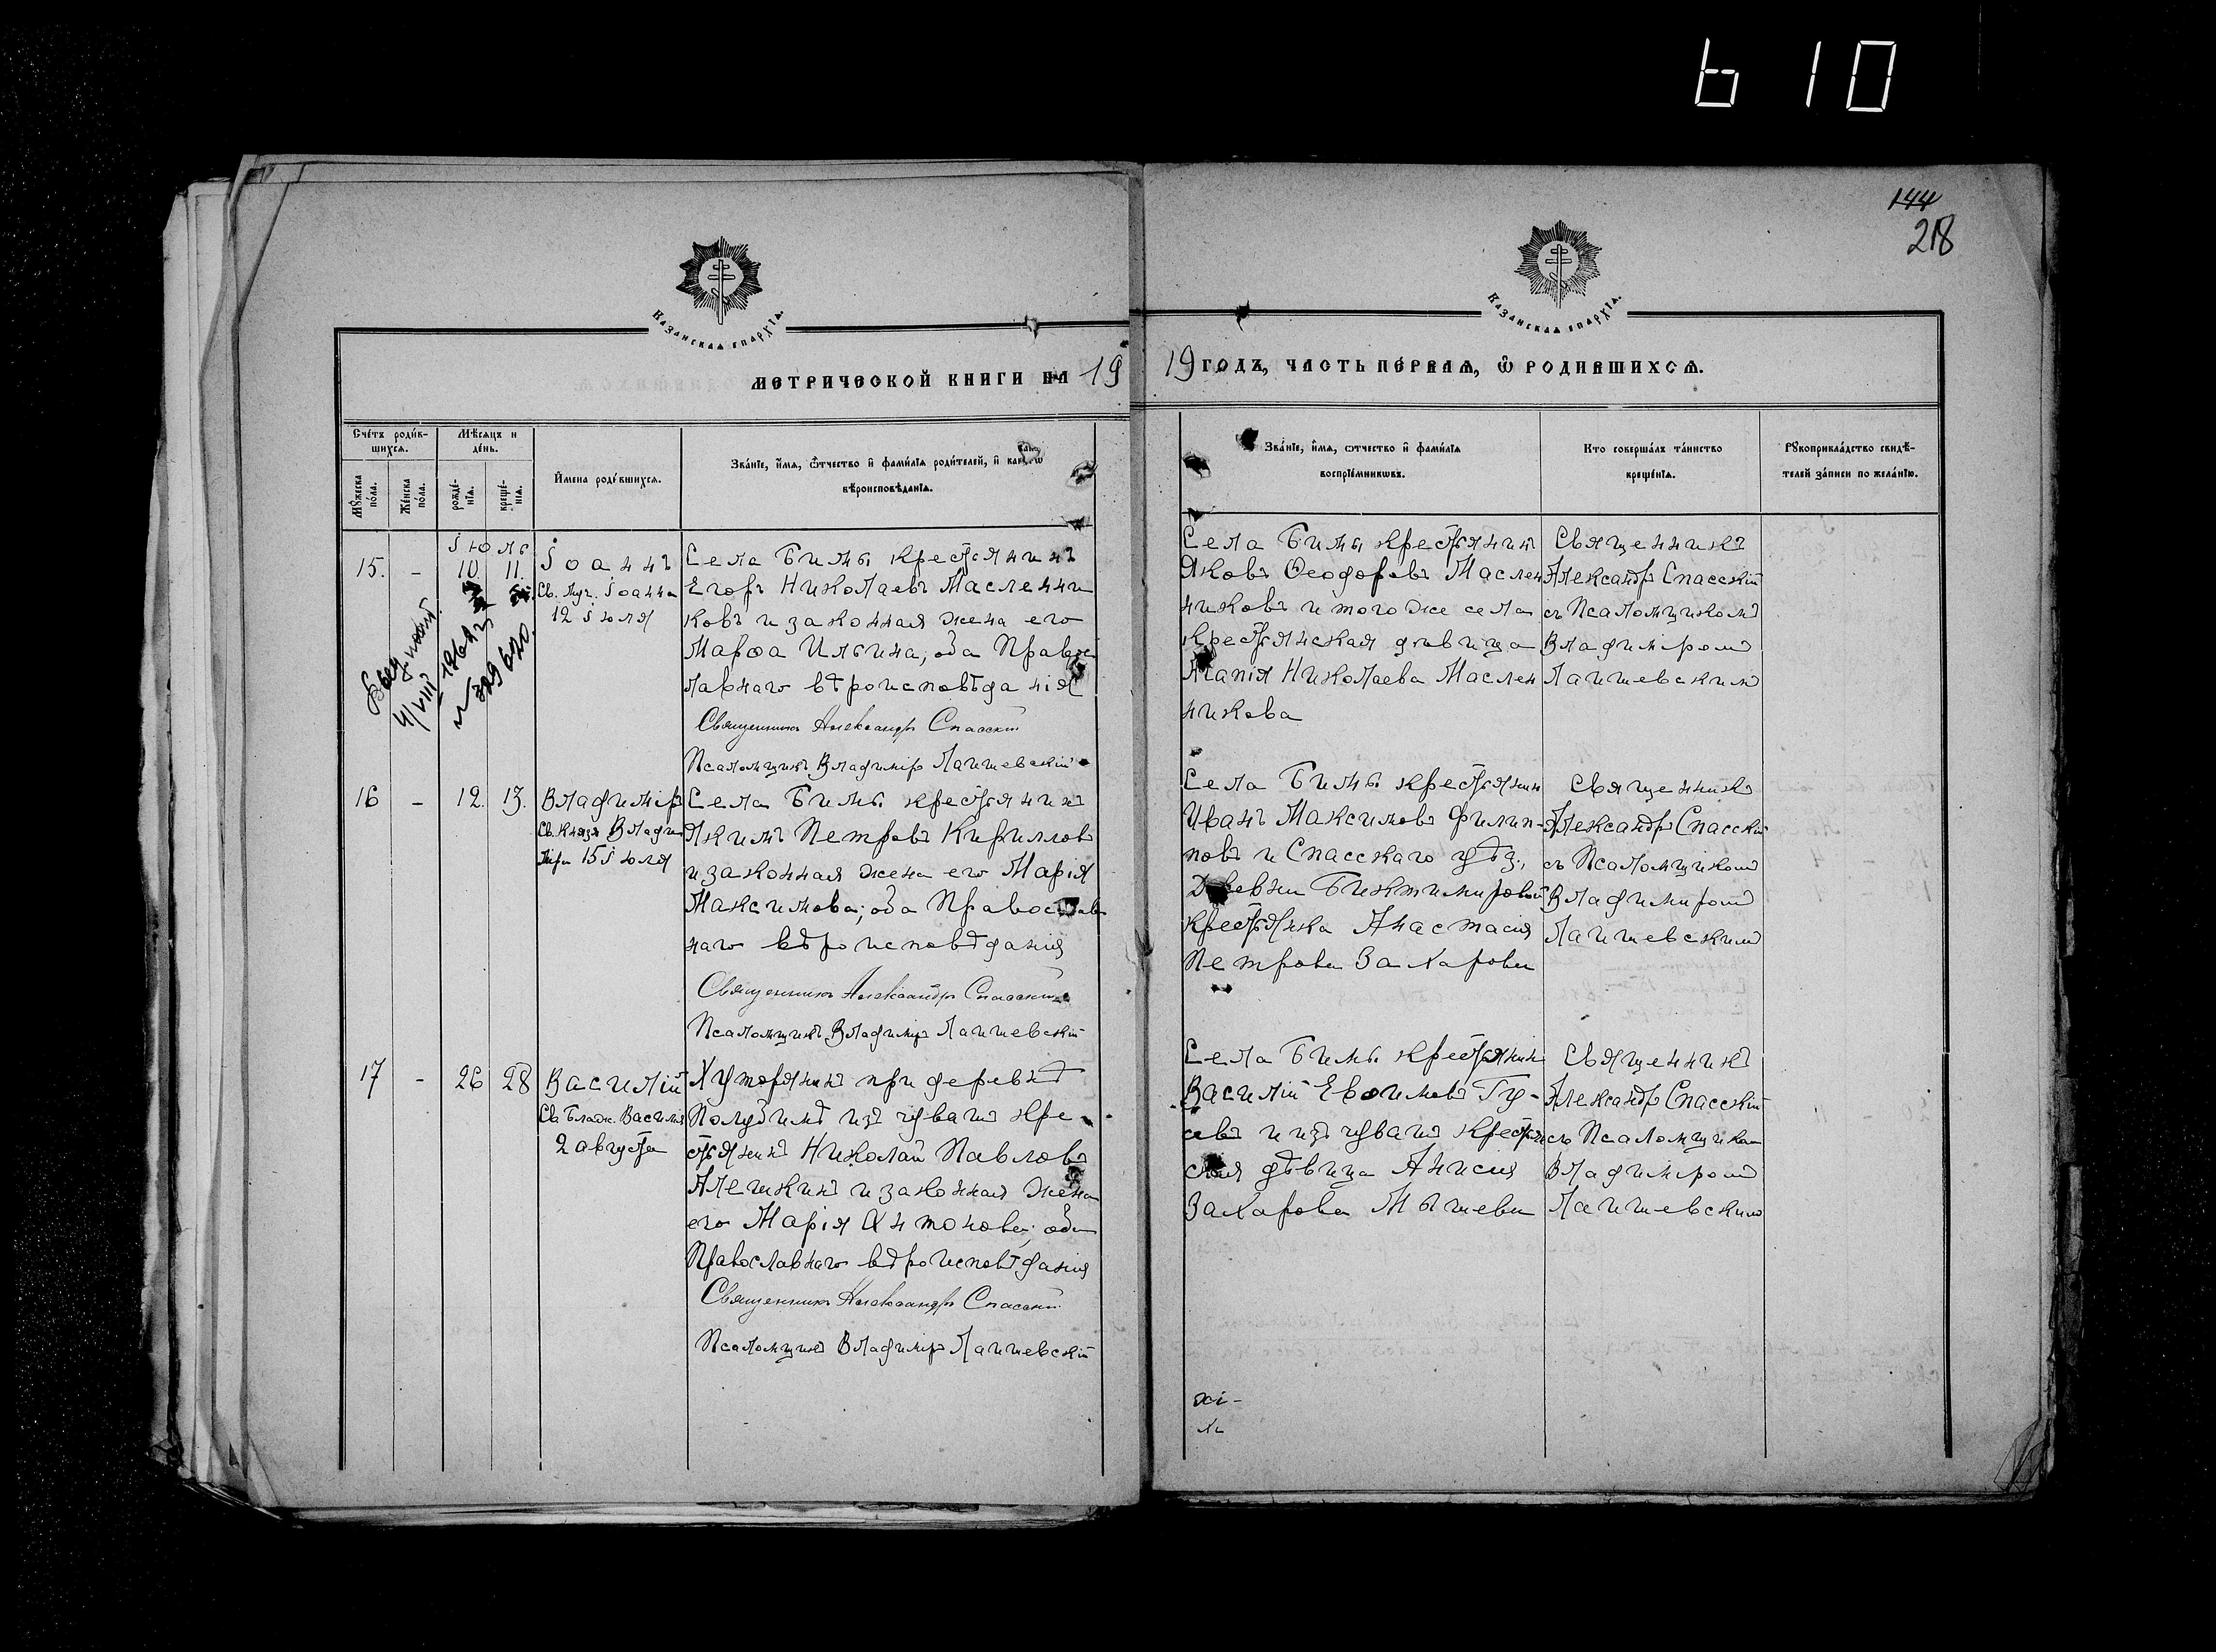 610
144
218
Казанская епархія.
Казанская епархія.
МЕТРИЧЕСКОЙ КНИГИ НА 19
19 ГОДЪ, ЧАСТЬ ПЕРВАЯ, Ѡ РОДИВШИХСЯ.
Счетъ родив-
шихся.
Мѣсяцъ и
день.
Мꙋжеска
пола.
Женска
пола.
рожде-
нія.
креще-
нія.
Имена родившихся.
Званіе, имя, ѿтчество и фамилія родителей, и какогѡ
вѣроисповѣданія.
Званіе, имя, ѿтчество и фамилія
воспріемникѡвъ.
Кто совершалъ таинство
крещенія.
Рꙋкоприкладство свидѣ-
телей записи по желанію.
Іюль
15. - 10. 11.
Іоаннъ
Св. муч. Іоанна
12 іюля
4/VIII
Села Бимы крестьянинъ
Егоръ Николаевъ Масленни
ковъ и законная жена его
Марѳа Ильина; оба Правос
лавнаго вѣроисповѣданія
Священникъ Александръ Спасскій
Псаломщикъ Владиміръ Лаишевскій
Села Бимы крестьянинъ
Яковъ Ѳеодоровъ Маслен
никовъ и того же села
крестьянская дѣвица
Агапія Николаева Маслен
никова
Священникъ
Александръ Спасскій
съ Псаломщикомъ
Владиміромъ
Лаишевскимъ
16 - 12. 13.
Владиміръ
Св. Князя Влади
міра 15 іюля
Села Бимы крестьянинъ
Якимъ Петровъ Кирилловъ
и законная жена его Марія
Максимова; оба Православ
наго вѣроисповѣданія
Священникъ Александръ Спасскій
Псаломщикъ Владиміръ Лаишевскій
Села Бимы крестьянин
Иванъ Максимовъ Филип-
повъ и Спасскаго уѣз.,
Деревни Биктимировой
крестьянка Анастасія
Петрова Захарова
Священникъ
Александръ Спасскій
съ Псаломщикомъ
Владимиромъ
Лаишевскимъ
17 - 26 28
Василій
Св. Блаж. Василія
2 августа
Хуторянинъ при деревнѣ
Полубимѣ изъ чувашъ кре
стьянинъ Николай Павловъ
Алешкинъ и законная жена
его Марія Антонова; оба
Православнаго вѣроисповѣданія
Священникъ Александръ Спасскій
Псаломщикъ Владиміръ Лаишевскій
Села Бимы крестьянин
Василій Евѳимовъ Гу-
севъ и изъ чувашъ крестьян
ская дѣвица Анисія
Захарова Мышева
Священникъ
Александръ Спасскій
съ Псаломщиком
Владиміромъ
Лаишевскимъ